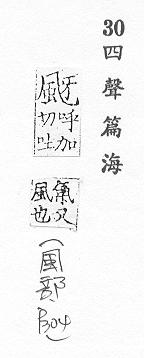 30四聲篇海
颬呼加切吐
氣又風也
(風部, B04)